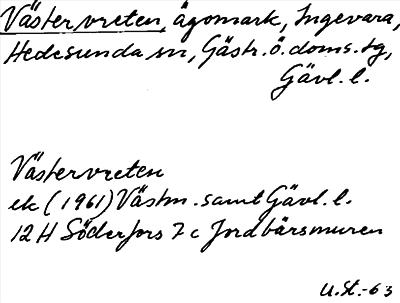 Västervreten, ägomark, Ingevara,
Hedesunda sn, Gästr. ö. doms. tg,
Gävl. l.
Västervreten
ek (1961) Västm. samt Gävl. l.
12 H Söderfors 7 c Jordbärsmuren
U.St.-63